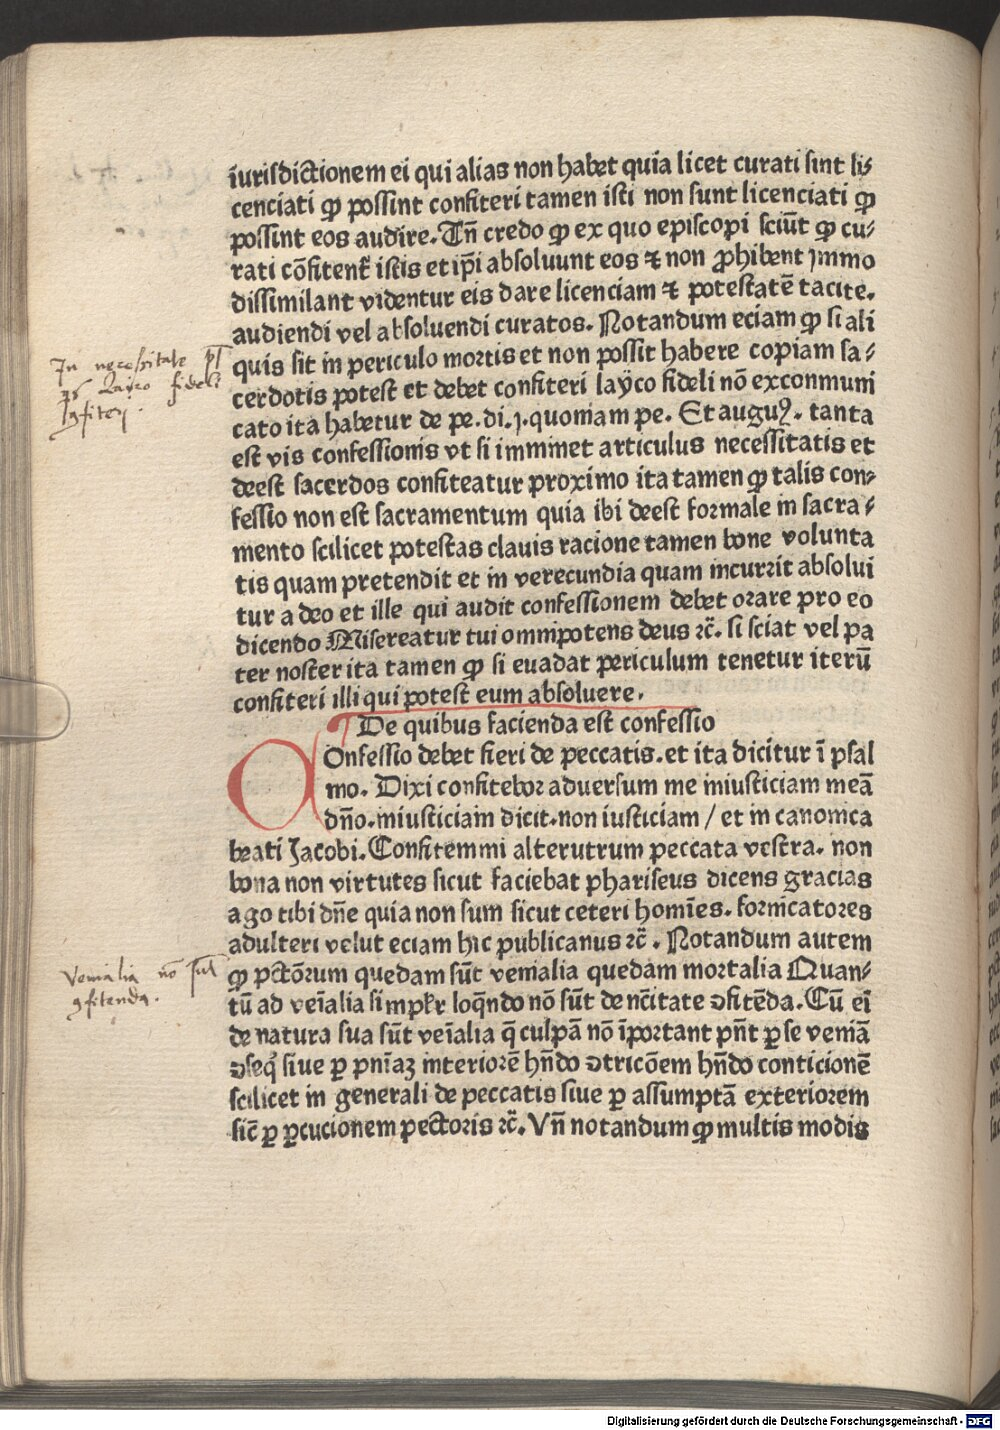 iurisdictionem ei qui alias non habet quia licet curati sint li⸗
cenciati ꝙ possint confiteri tamen isti non sunt licenciati ꝙ
possint eos audire. Tñ credo ꝙ ex quo episcopi sciūt ꝙ cu⸗
rati cōfitent̃ istis et ip̄i absoluunt eos ⁊ non ꝓhibent ymmo
dissimilant videntur eis dare licenciam ⁊ potestatē tacite.
audiendi vel absoluendi curatos. Notandum eciam ꝙ si ali
quis sit in periculo mortis et non possit habere copiam sa⸗
cerdotis potest et debet confiteri layco fideli nō excommuni
cato ita habetur de pe. di. j. quoniam pe. Et auguꝰ. tanta
est vis confessionis vt si imminet articulus necessitatis et
deest sacerdos confiteatur proximo ita tamen ꝙ talis con⸗
fessio non est sacramentum quia ibi deest formale in sacra⸗
mento scilicet potestas clauis racione tamen bone volunta
tis quam pretendit et in verecundia quam incurrit absolui
tur a deo et ille qui audit confessionem debet orare pro eo
dicendo Misereatur tui omnipotens deus ⁊c̃. si sciat vel pa
ter noster ita tamen ꝙ si euadat periculum tenetur iterū
confiteri illi qui potest eum absoluere.
De quibus facienda est confessio
Confessio debet fieri de peccatis. et ita dicitur ī psal
mo. Dixi confitebor aduersum me iniusticiam meā
dño. iniusticiam dicit. non iusticiam / et in canonica
beati Jacobi. Confitemini alterutrum peccata vestra. non
bona non virtutes sicut faciebat phariseus dicens gracias
ago tibi dñe quia non sum sicut ceteri homīes. fornicatores
adulteri velut eciam hic publicanus ⁊c̃. Notandum autem
ꝙ pctōrum quedam sūt venialia quedam mortalia Quan⸗
tū ad veīalia sīmpłr loq̄ndo nō sūt de nc̄itate ꝯfitēda. Cū eī
de natura sua sūt veīalia q̄ culpā nō īportant pñt ꝑ se veniā
ꝯseq̇ siue ꝑ pnīaꝫ interiorē hñdo ꝯtricōem hñdo conticionē
scilicet in generali de peccatis siue ꝑ assumptā exteriorem
sic̄ ꝑ ꝑcucionem pectoris ⁊c̃. Vñ notandum ꝙ multis modis
In necessitate pt
qs layco fideli
ꝯfiteri.
Venialia nō sūt
ꝯfitenda.
Digitalisierung gefördert durch die Deutsche Forschungsgemeinschaft - DFG